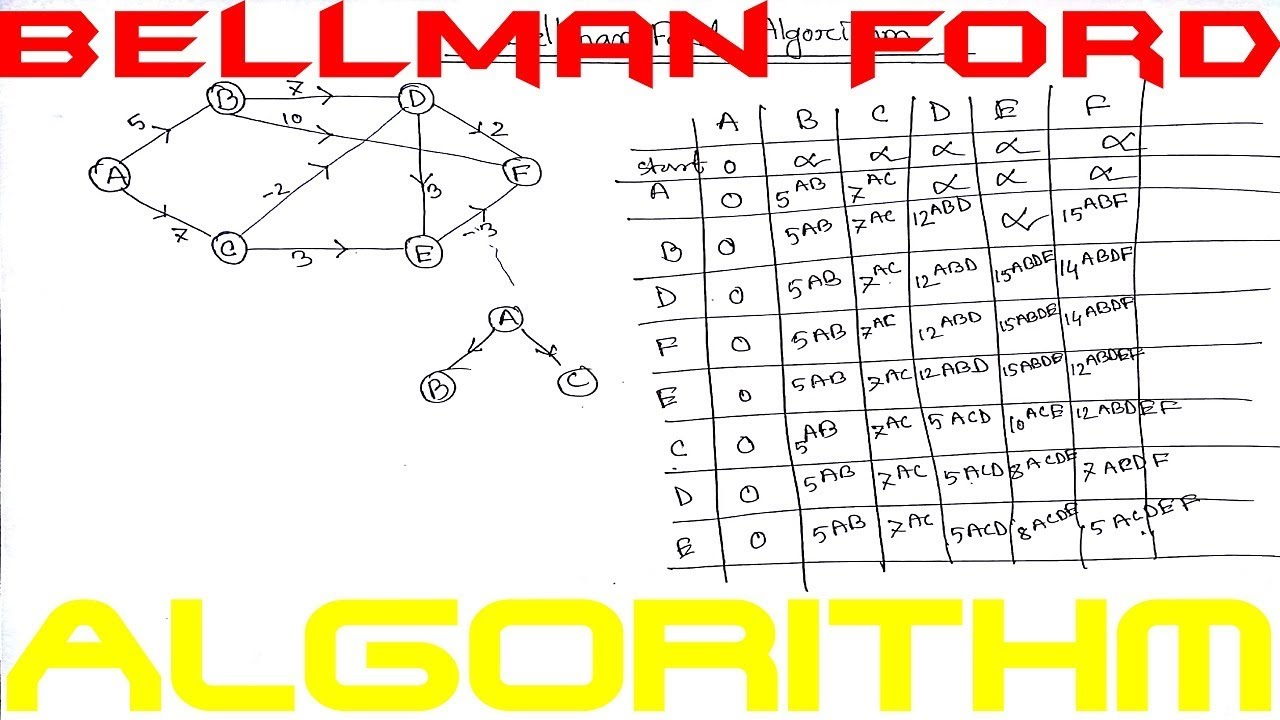 BELLMAN FORD
Algorithm
B 7 D
5 10 2
A F
-2 3
7 -3
C 3 E
A
B C
A B C D E F
start 0 ∝ ∝ ∝ ∝ ∝
A 0 5 AB 7 AC ∝ ∝ ∝
B 0 5 AB 7 AC 12 ABD ∝ 15 ABF
D 0 5 AB 7 AC 12 ABD 15 ABDE 14 ABDF
F 0 5 AB 7 AC 12 ABD 15 ABDE 14 ABDF
E 0 5 AB 7 AC 12 ABD 15 ABDE 12 ABDEF
C 0 5 AB 7 AC 5 ACD 10 ACE 12 ABDEF
D 0 5 AB 7 AC 5 ACD 8 ACDE 7 ACDF
E 0 5 AB 7 AC 5 ACD 8 ACDE 5 ACDEF
ALGORITHM